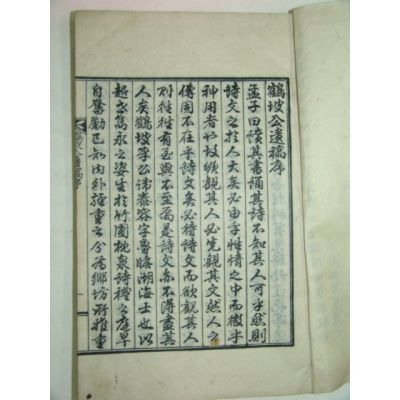 鶴坡公遺稿序
孟子曰讀其書誦其詩不知其人可乎然則
詩文之於人大矣必由乎性情之中而徵乎
神用者也故欲觀其人必先觀其文然人之
傳固不在乎詩文矣必待詩文而欲觀其人
則往往有爲與不並焉是詩文亦不得盡其
人矣鶴坡李公諱泰容字魯瞻湖海士也以
起世雋永之姿生於竹圃枕泉詩禮之庭早
自奮勵已知內外輕重之分爲鄉坊所推重